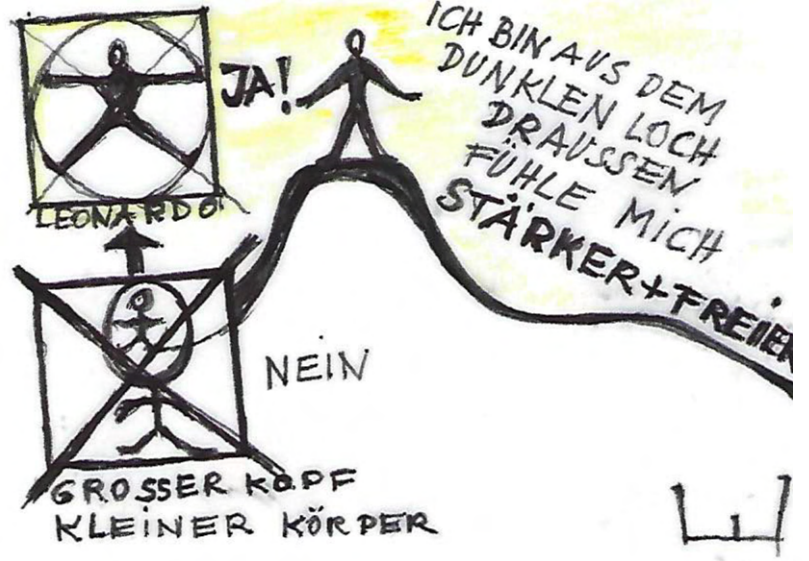 JA!
ICH BIN AUS DEM
DUNKLEN LOCH
DRAUSSEN
FÜHLE MICH
STÄRKER+FREIER
LEONARDO
NEIN
GROSSER KOPF
KLEINER KÖRPER